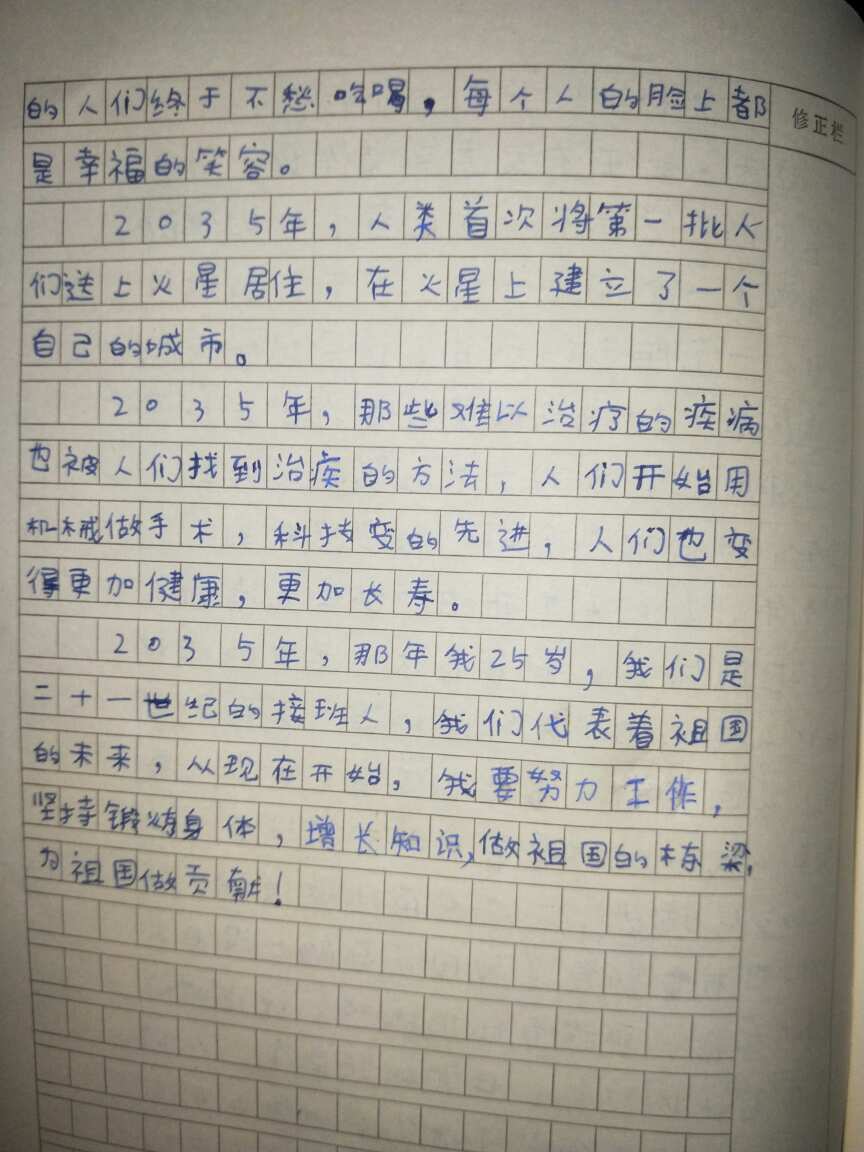 的人们终于不愁吃喝，每个人的脸上都
修正栏
是幸福的笑容。
2035年，人类首次将第一批人
们送上火星居住，在火星上建立了一个
自己的城市。
2035年，那些难以治疗的疾病
也被人们找到治疾的方法，人们开始用
机械做手术，科技变的先进，人们也变
得更加健康，更加长寿。
2035年，那年我25岁，我们是
二十一世纪的接班人，我们代表着祖国
的未来，从现在开始，我要努力工作，
坚持锻炼身体，增长知识，做祖国的栋梁，
为祖国做贡献！